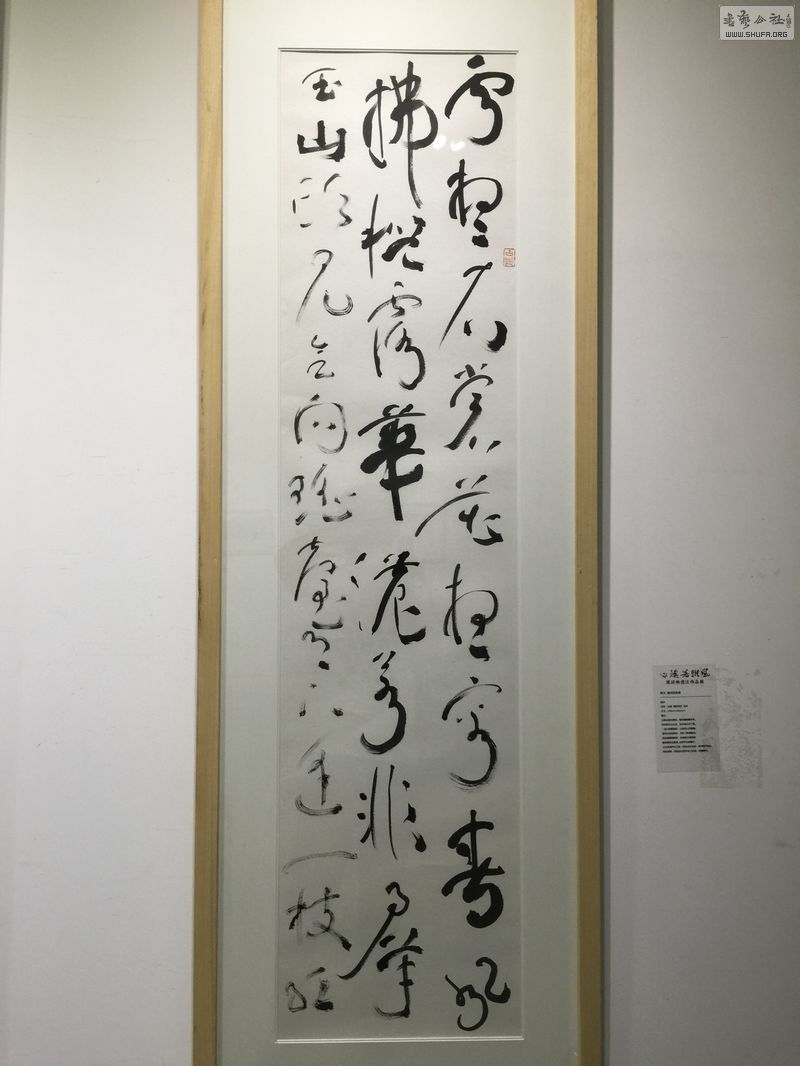 雲想衣裳花想容春風
拂檻露華濃若非羣
玉山頭見会向瑶臺月下逢一枝紅
書藝公社
WWW.SHUFA.ORG